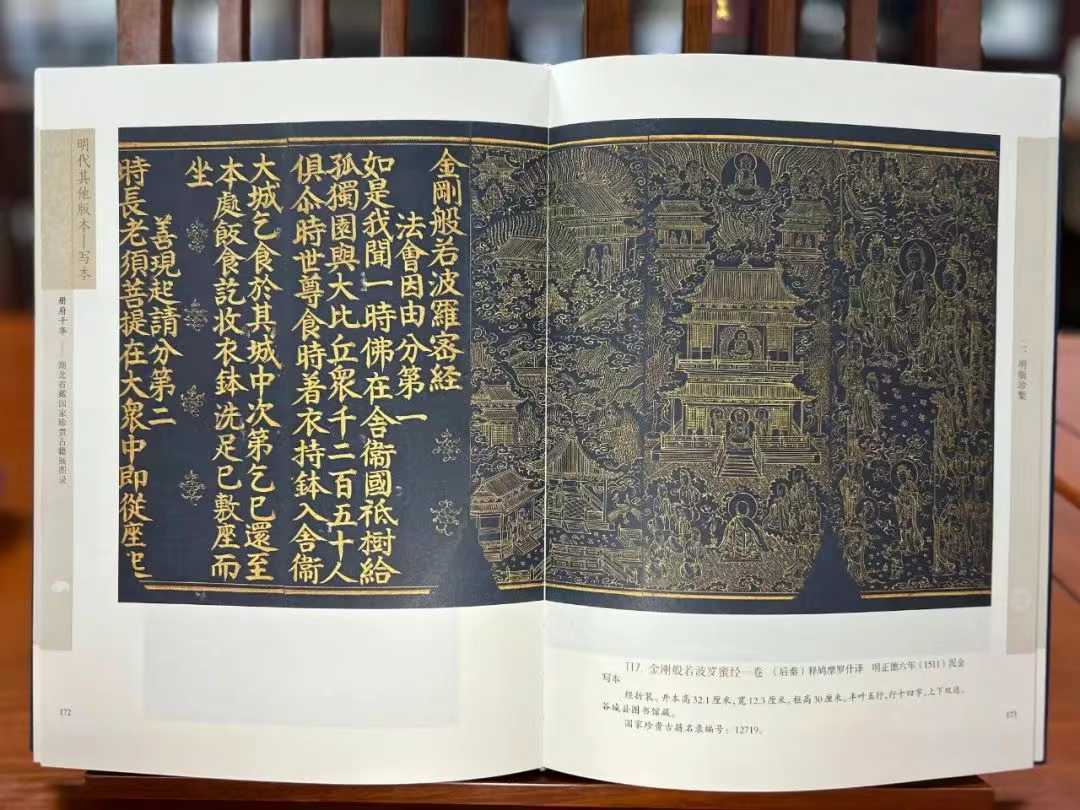 明代其他版本—写本
册府千华——湖北省藏国家珍贵古籍版图录
金剛般若波羅蜜經
法會因由分第一
如是我聞一時佛在舍衞國祇樹給
孤獨園與大比丘衆千二百五十人
俱尒時世尊食時著衣持鉢入舍衞
大城乞食於其城中次第乞已還至
本處飯食訖收衣鉢洗足已敷座而
坐
善現起請分第二
時長老須菩提在大衆中即從座起
172
二、明椠珍集
117. 金刚般若波罗蜜经一卷 （后秦）释鸠摩罗什译 明正德六年（1511）泥金
写本
经折装。开本高32.1厘米，宽12.3厘米。框高30厘米。半叶五行，行十四字，上下双边。
谷城县图书馆藏。
国家珍贵古籍名录编号：12719。
173